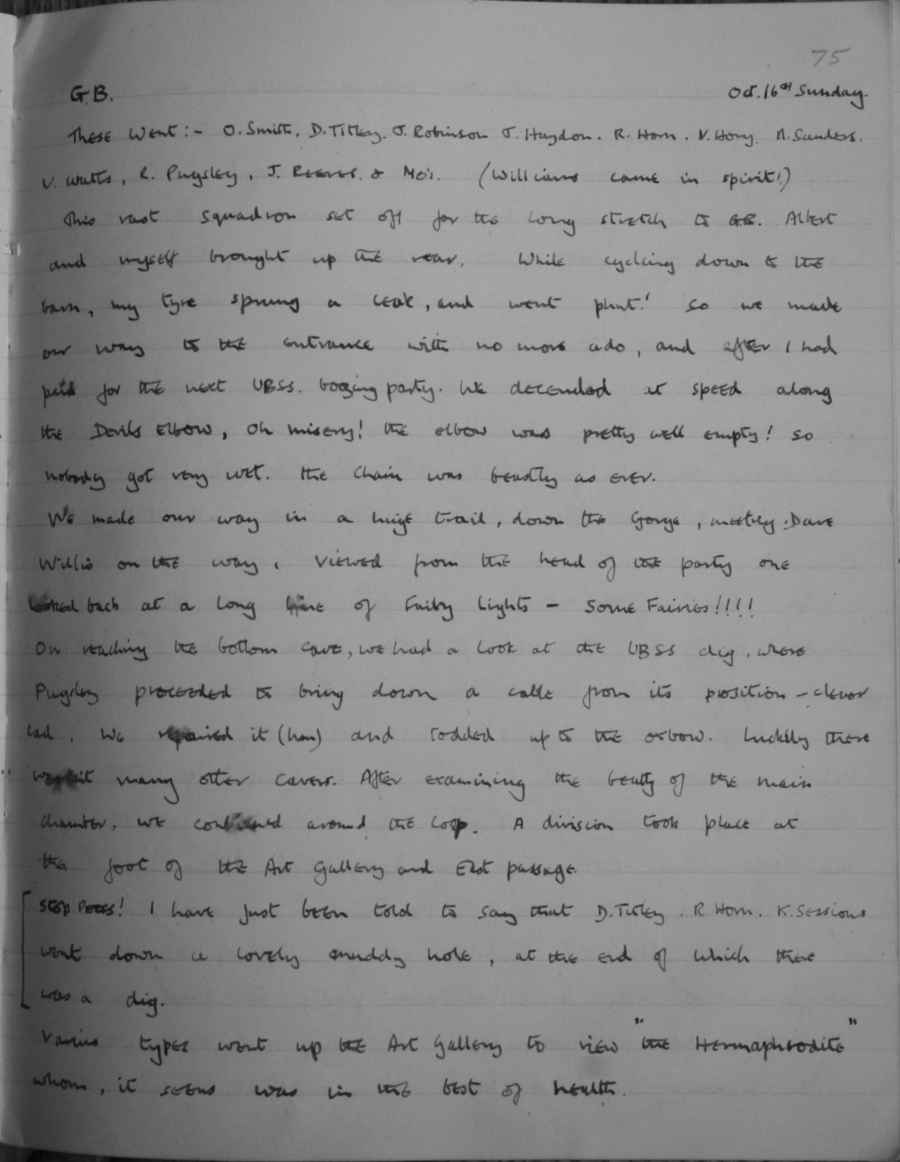 75
G.B. Oct. 16th Sunday.
These Went:- O. Smith, D. Titley. J. Robinson J. Haydon. R. Horn. V. Hony. M. Sanders.
V. Watts, R. Pugsley, J. Reeves. & Mo's. (Williams came in spirit!)
This vast squadron set off for the long stretch to G.B. Albert
and myself brought up the rear. While cycling down to the
barn, my tyre sprung a leak, and went phut! So we made
our way to the entrance with no more ado, and after I had
paid for the next UBSS. boozing party. We decended at speed along
the Devils Elbow, oh misery! the elbow was pretty well empty! so
nobody got very wet. The chain was beastly as ever.
We made our way in a huge trail, down the Gorge, meeting Dave
Willis on the way. Viewed from the head of the party one
looked back at a long line of Fairy Lights - Some Fairies!!!!
On reaching the bottom cave, we had a look at the UBSS dig, where
Pugsley proceeded to bring down a cable from its position - clever
lad. We repaired it (hm) and rodded up to the oxbow. Luckily there
wasn't many other cavers. After examining the beauty of the main
chamber, we continued around the loop. A division took place at
the foot of the Art Gallery and Exit passage.
Stop Press! I have just been told to say that D. Titley. R. Horn. K. Sessions
went down a lovely muddy hole, at the end of which there
was a dig.
Various types went up the Art Gallery to view "the Hermaphrodite"
whom, it seems was in the best of health.